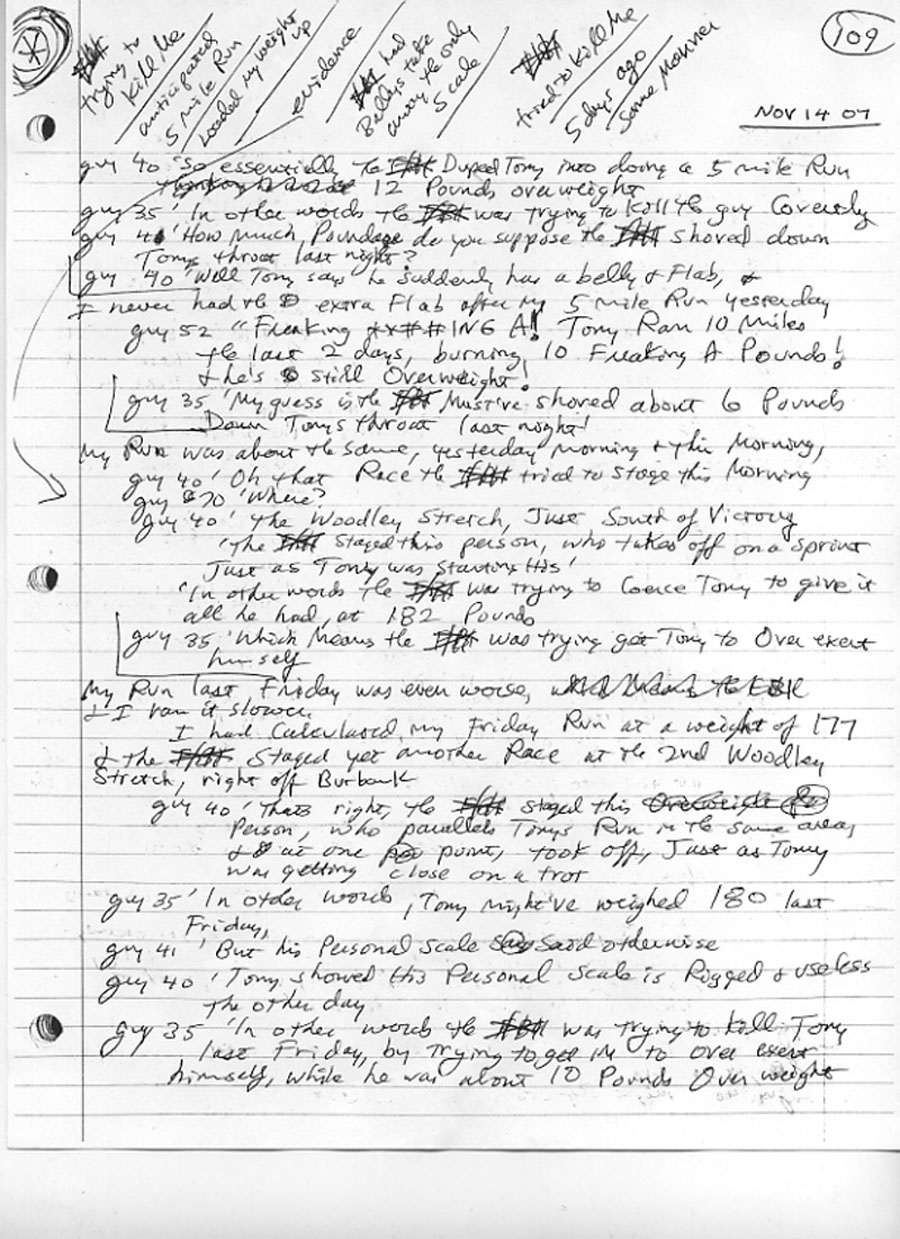 trying to
kill Me
anticipated
5 mile Run
Loaded my weight
up
evidence
had
Ballys take
away the only
Scale
tried to kill Me
5 days ago
Same Manner
109
NOV 14 07
guy 40 'So essentially the Duped Tony into doing a 5 mile Run
12 Pounds overweight
guy 35' In other words the was trying to kill the guy Covertly
guy 41 'How much Poundage do you suppose the shoved down
Tonys throat last night?
guy 40 'Well Tony says he suddenly has a belly & Flab, &
I never had the extra Flab after my 5 mile Run yesterday
guy 52 "Freaking **##ING A! Tony Ran 10 Miles
the last 2 days, burning 10 Freaking A Pounds!
& he's still Overweight!
guy 35 'My guess is the Must've shoved about 6 Pounds
Down Tonys throat last night!
My Run was about the same, yesterday Morning & this Morning,
guy 40' Oh that Race the tried to stage this Morning
guy 70 'Where?
guy 40' the Woodley Stretch, Just South of Victory
'the Staged this person, who takes off on a sprint
Just as Tony was starting his'
'In other words the was trying to Coerce Tony to give it
all he had, at 182 Pounds
guy 35 'Which Means the was trying get Tony to Over exert
himself
My Run last Friday was even worse,
& I ran it slower.
I had Calculated my Friday Run at a weight of 177
& the Staged yet another Race at the 2nd Woodley
Stretch, right off Burbank
guy 40' Thats right, the staged this
Person, who parallels Tonys Run in the same area,
& at one point, took off, Just as Tony
was getting close on a trot
guy 35' In other words, Tony might've weighed 180 last
Friday,
guy 41 ' But his Personal Scale Said otherwise
guy 40 'Tony showed His Personal Scale is Rigged & useless
the other day
guy 35 'In other words the was trying to kill Tony
last Friday, by trying to get him to over exert
himself, while he was about 10 Pounds Over weight